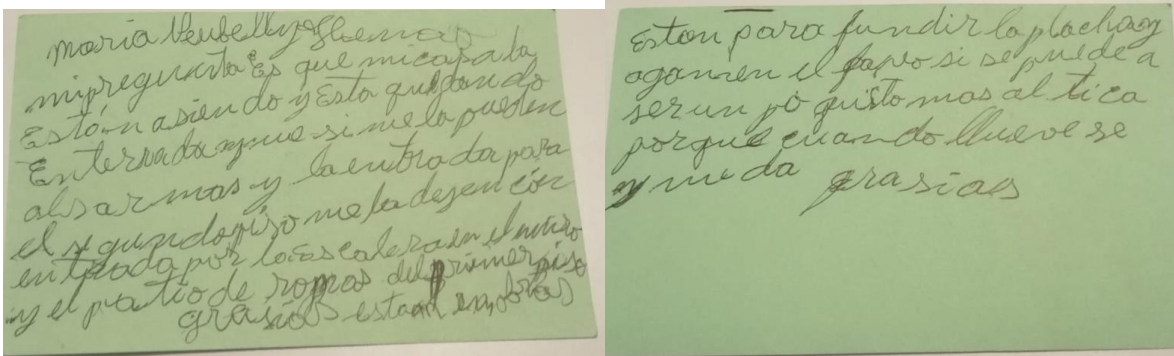 maria
mipregunta Es que micasa la
Están asiendo y Esta quedando
Enterrada y que si me la pueden
alsar mas y la entrada para
el segundo piso me la dejen con
entrada por la escalera en el muro
y el patio de ropas del primer piso
grasias estan en obras
Eston para fundir la placha y
aganmen el favo si se puede a
ser un poquisto mas altica
porque cuando llueve se
y nu da grasias